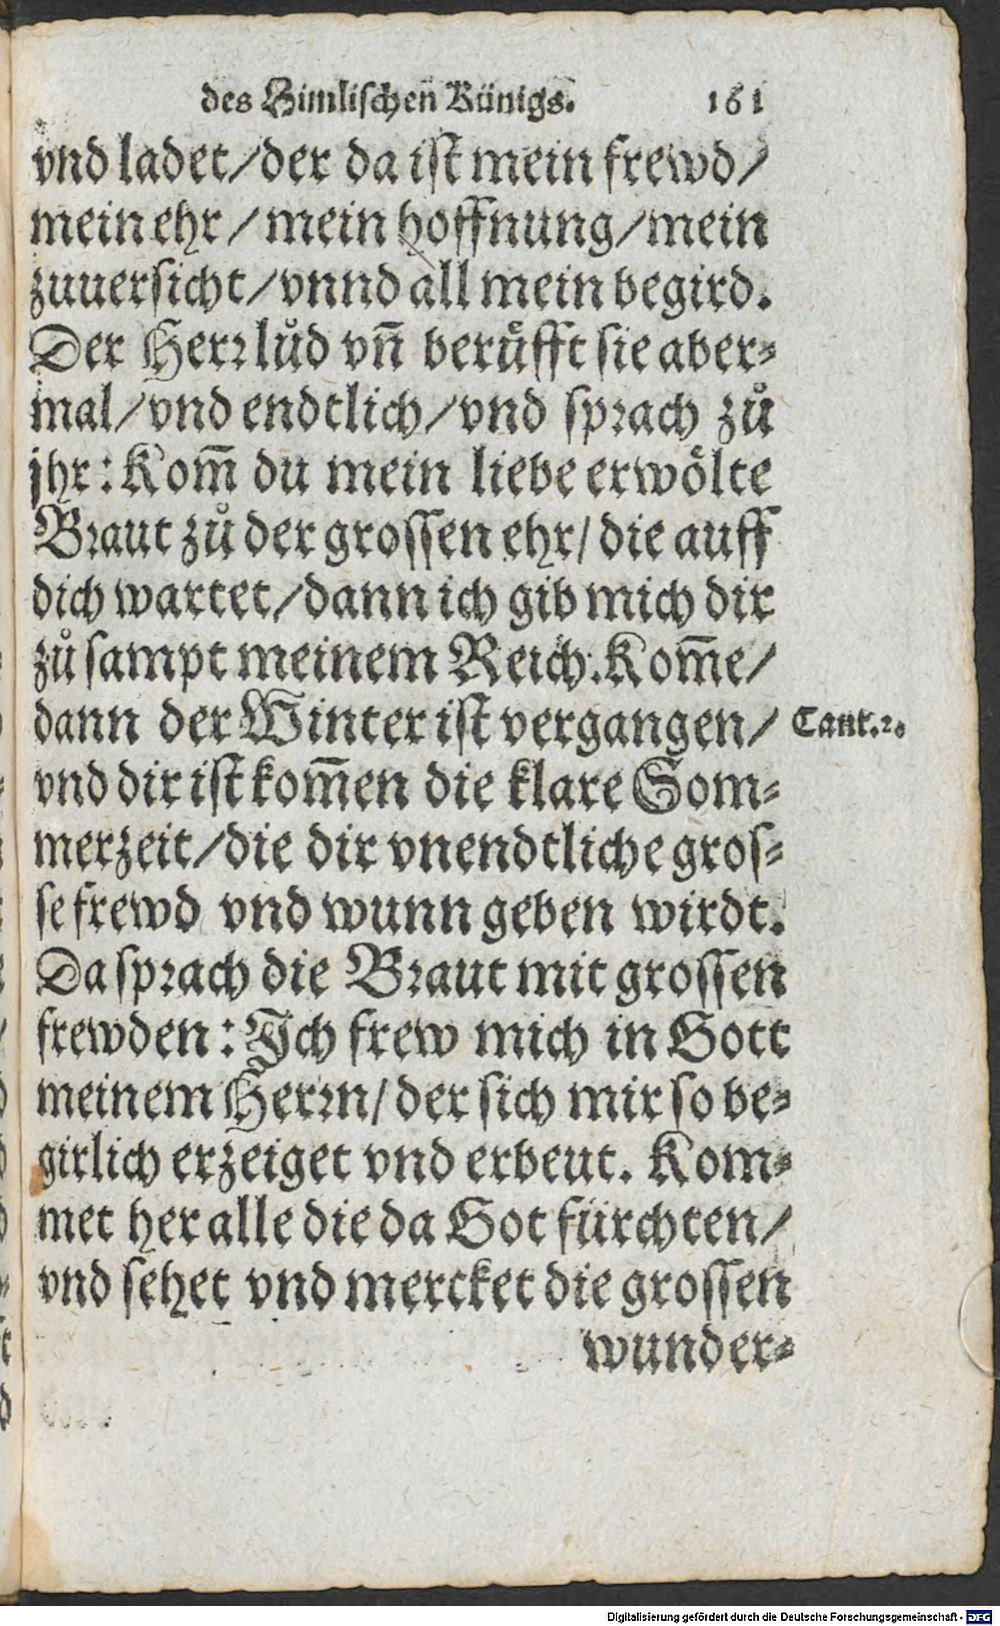 des Himlischen Künigs. 161
vnd ladet/der da ist mein frewd/
mein ehr/mein hoffnung/mein
zuuersicht/vnnd all mein begird.
Der Herr lůd vn̄ berůfft sie aber-
mal/vnd endtlich/vnd sprach zů
jhr: Kom̄ du mein liebe erwoͤlte
Braut zů der grossen ehr/die auff
dich wartet/dann ich gib mich dir
zů sampt meinem Reich. Kom̄e/
dann der Winter ist vergangen/ Cant.2.
vnd dir ist kom̄en die klare Som-
merzeit/die dir vnendtliche gros-
se frewd vnd wunn geben wirdt.
Da sprach die Braut mit grossen
frewden: Ich frew mich in Gott
meinem Herrn/der sich mir so be-
girlich erzeiget vnd erbeut. Kom-
met her alle die da Got fürchten/
vnd sehet vnd mercket die grossen
wunder-
Digitalisierung gefördert durch die Deutsche Forschungsgemeinschaft - DFG